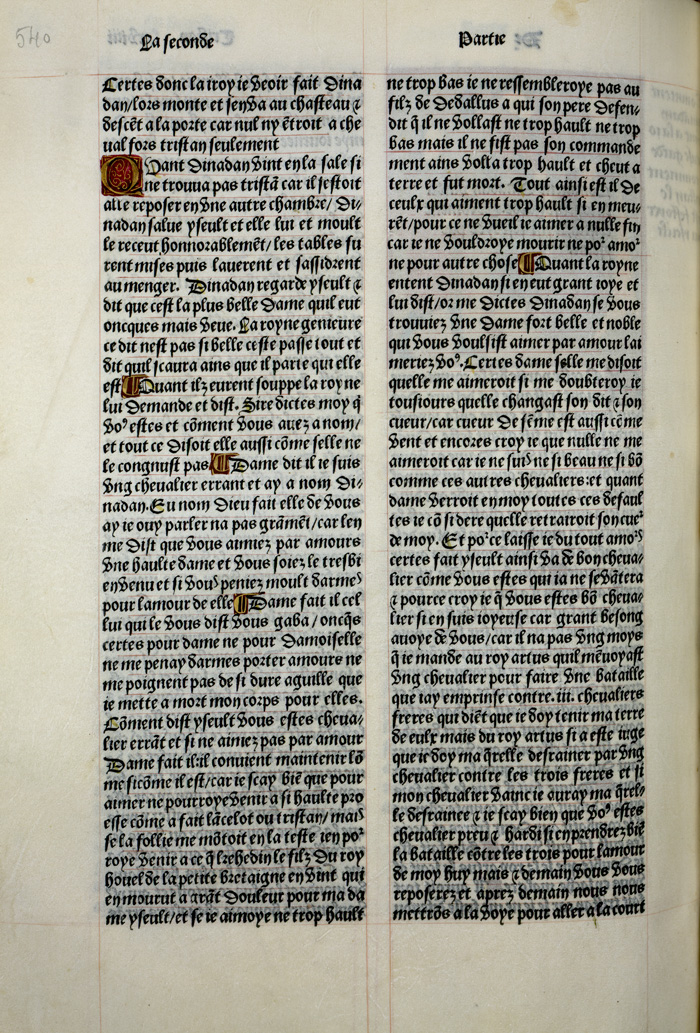 540
La seconde
Partie
Certes donc la iroy ie veoir fait Dina
dan/lors monte et sen va au chasteau ⁊
descẽt a la porte car nul ny ẽtroit a che
ual fors tristan seulement
Quant Dinadan vint en la sale si
ne trouua pas tristã car il sestoit
alle reposer en vne autre chambre/ Di-
nadan salue yseult et elle lui et moult
le receut honnorablemẽt/les tables fu
rent mises puis lauerent et sassidrent
au menger. Dinadan regarde yseult ⁊
dit que cest la plus belle Dame quil eut
oncques mais veue. La royne genieure
ce dit nest pas si belle ceste passe tout et
dit quil scaura ains que il parte qui elle
est ¶Quant ilz eurent souppe la royne
lui Demande et dist. Sire dictes moy q̃
voꝰ estes et cõment vous auez a nom/
et tout ce Disoit elle aussi cõme selle ne
le congnust pas ¶Dame dit il ie suis
vng cheualier errant et ay a nom Di-
nadan. Eu nom Dieu fait elle de vous
ay ie ouy parler na pas grãmẽt/car len
me Dist que vous aimiez par amours
vne haulte dame et vous soiez le tresbi
en venu et si vous peniez moult darmes
pour lamour de elle ¶Dame fait il cel
lui qui le vous dist vous gaba/ oncq̃s
certes pour dame ne pour Damoiselle
ne me penay darmes porter amours ne
me poignent pas de si dure aguille que
ie mette a mort mon corps pour elles.
Cõment dist yseult vous estes cheua-
lier errãt et si ne aimez pas par amour
Dame fait il:il conuient maintenir lõ
me sicõme il est/car ie scay biẽ que pour
aimer ne pourroye venir a si haulte pro
esse cõme a fait lãcelot ou tristan/ mais
se la follie me mõtoit en la teste ien poꝛ
roye venir a ce q̃ lrehedin le filz Du roy
houel de la petite bretaigne en vint qui
en mourut a grãt Douleur pour ma da
me yseult/et se ie aimoye ne trop hault
ne trop bas ie ne ressembleroye pas au
filz de Dedallus a qui son pere Defen-
dit q̃ il ne vollast ne trop hault ne trop
bas mais il ne fist pas son commande
ment ains volta trop hault et cheut a
terre et fut mort. Tout ainsi est il De
ceulx qui aiment trop hault si en meu-
rẽt/pour ce ne vueil ie aimer a nulle fin
car ie ne vouldroye mourir ne poꝛ amoꝛ
ne pour autre chose ¶Quant la royne
entent Dinadan si en eut grant ioye et
lui dist/or me Dictes Dinadan se vous
trouuiez vne Dame fort belle et noble
qui vous voulsist aimer par amour lai
meriez voꝰ. Certes dame selle me disoit
quelle me aimeroit si me doubteroy ie
tousiours quelle changast son dit ⁊ son
cueur/car cueur De fẽme est aussi cõme
vent et encores croy ie que nulle ne me
aimeroit car ie ne suis ne si beau ne si bõ
comme ces autres cheualiers:et quant
dame verroit en moy toutes ces defaul
tes ie cõsidere quelle retrairoit son cueꝛ
de moy. Et poꝛ ce laisse ie du tout amoꝛs
certes fait yseult ainsi va de bon cheua-
lier cõme vous estes qui ia ne se vãtera
⁊ pource croy ie q̃ vous estes bõ cheua-
lier si en suis ioyeuse car grant besong
auoye de vous/car il na pas vng moys
q̃ ie mande au roy artus quil mẽuoyast
vng cheualier pour faire vne bataille
que iay emprinse contre .iii. cheualiers
freres qui diẽt que ie doy tenir ma terre
de eulx mais du roy artus si a este iuge
que ie doy ma q̃relle desrainer par vng
cheualier contre les trois freres et si
mon cheualier vainc ie auray ma q̃rel-
le desraince ⁊ ie scay bien que voꝰ estes
cheualier preu ⁊ hardi si enprendrez biẽ
la bataille cõtre les trois pour lamour
de moy huy mais ⁊ demain vous vous
reposerez et aprez demain nous nous
mettrõs a la voye pour aller a la court